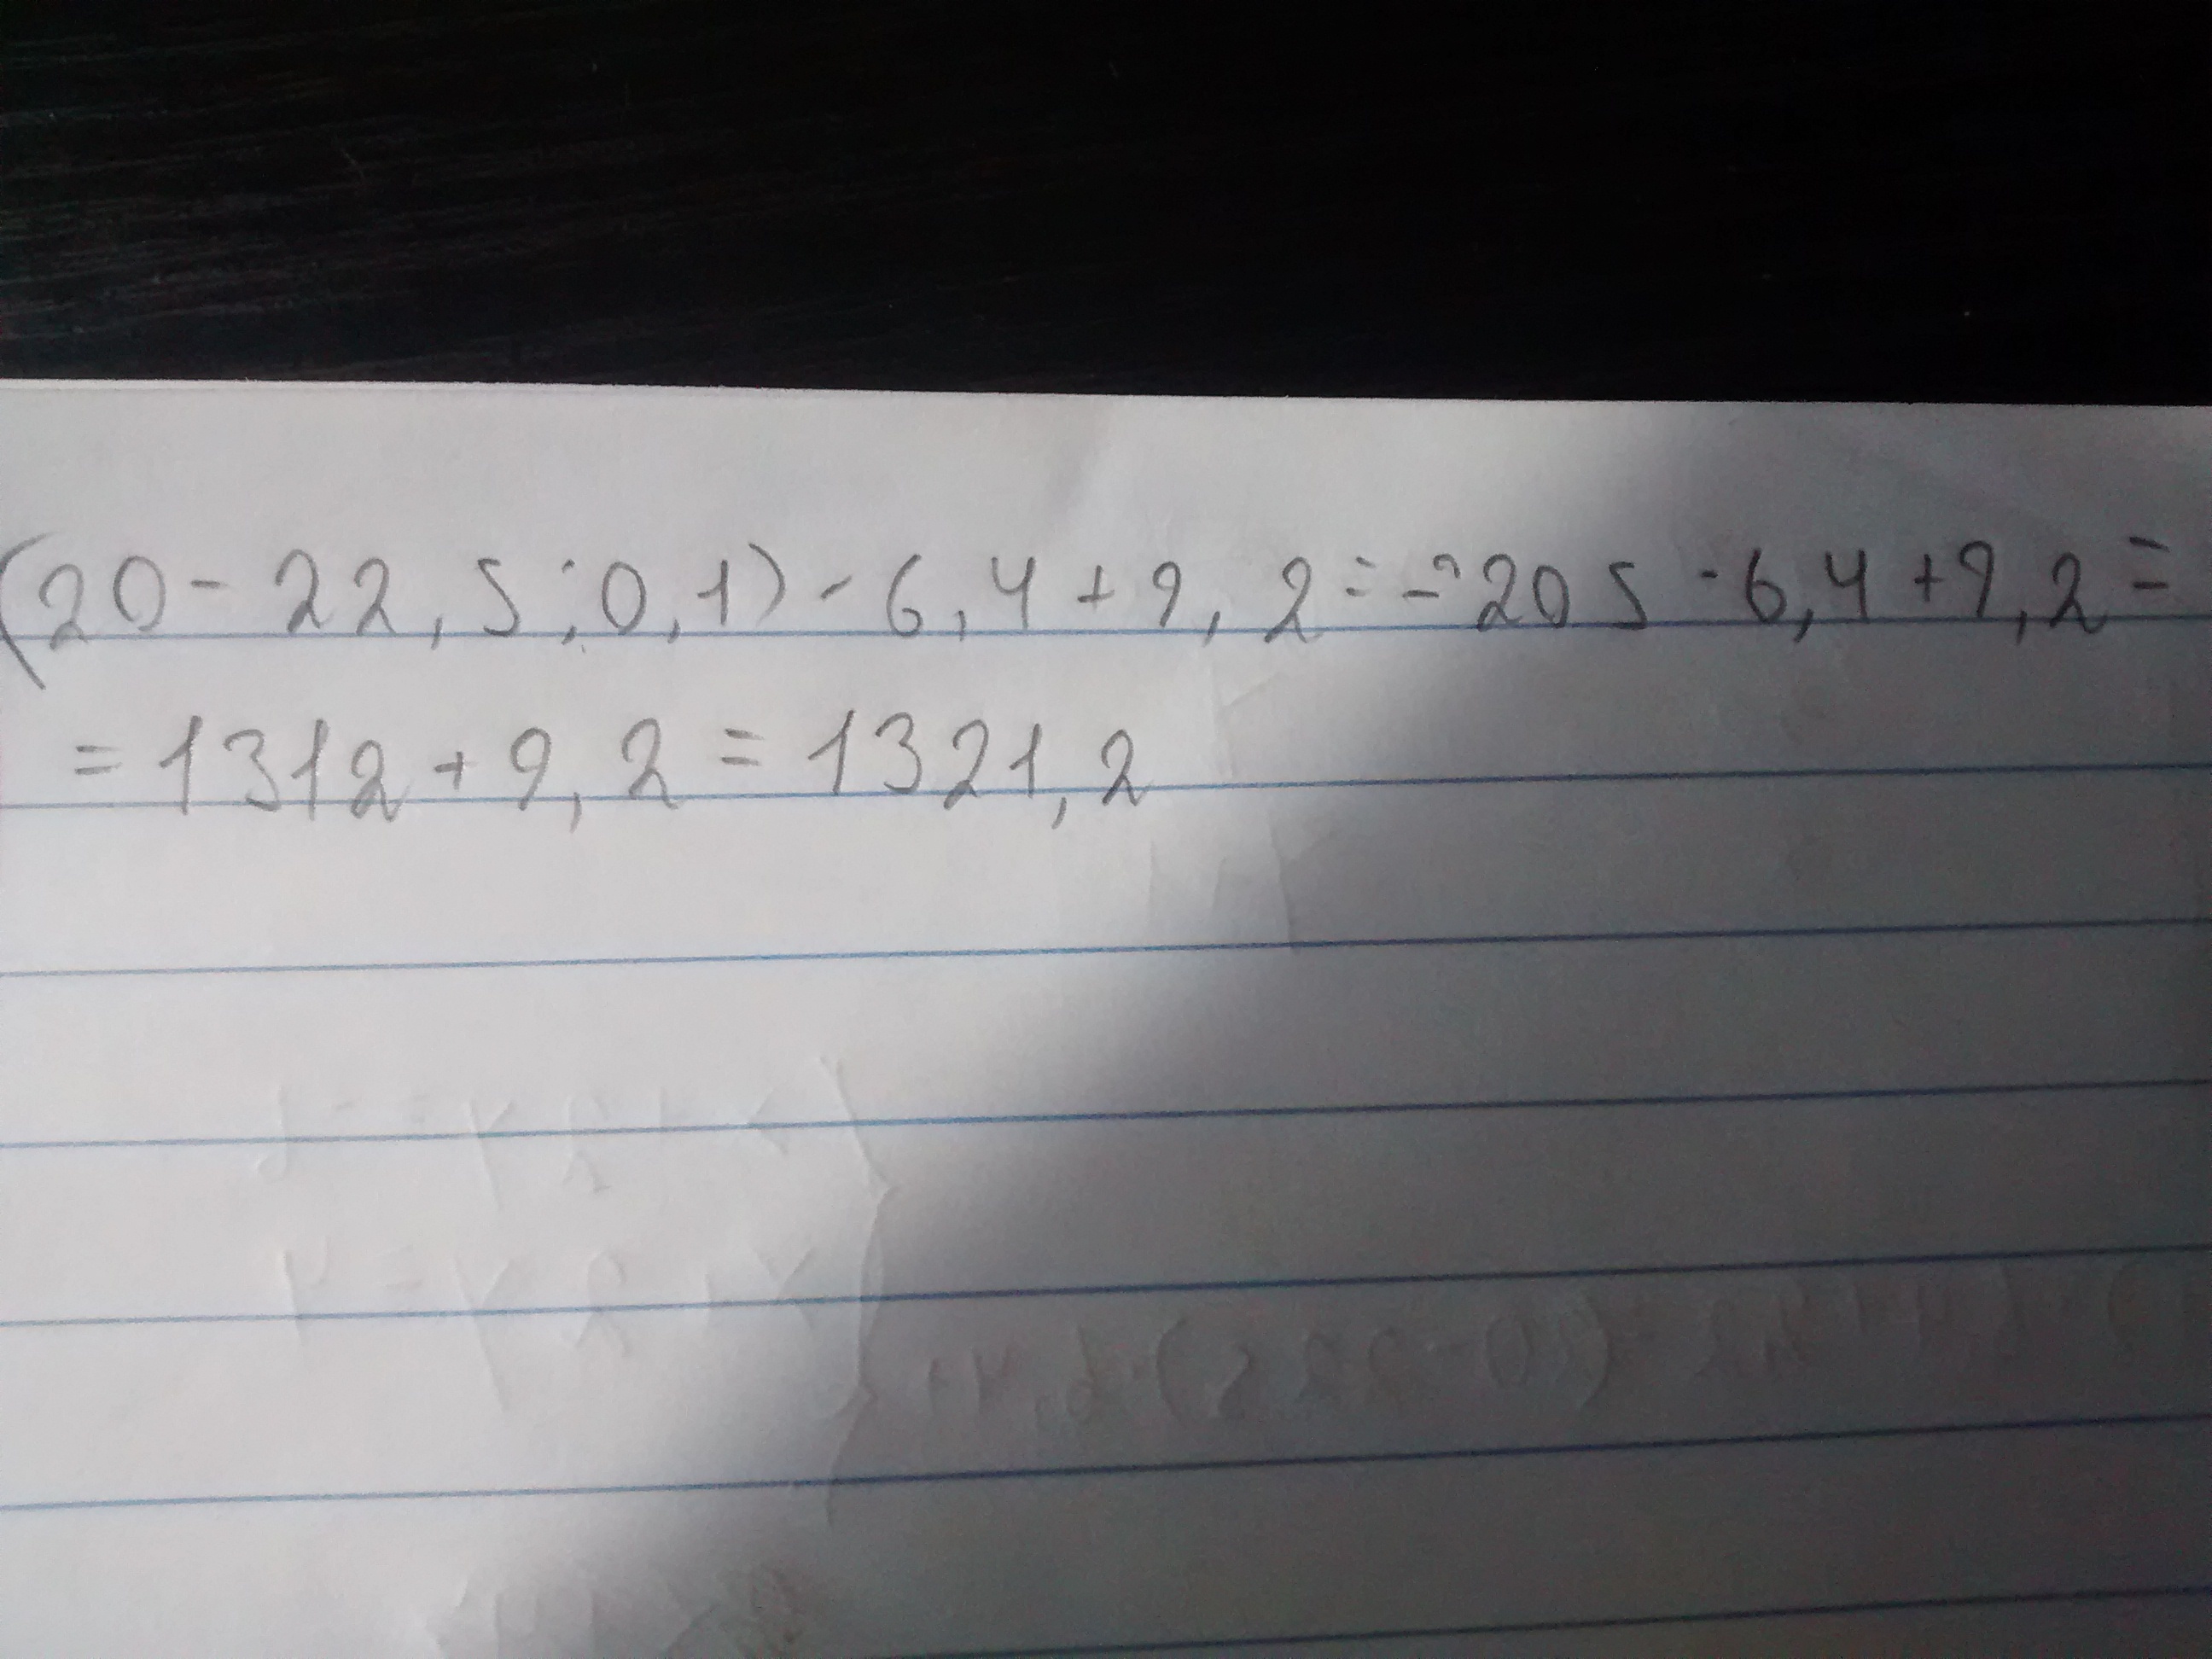 (20-22,5:0,1)-6,4+9,2=-205-6,4+9,2=
=1312+9,2=1321,2